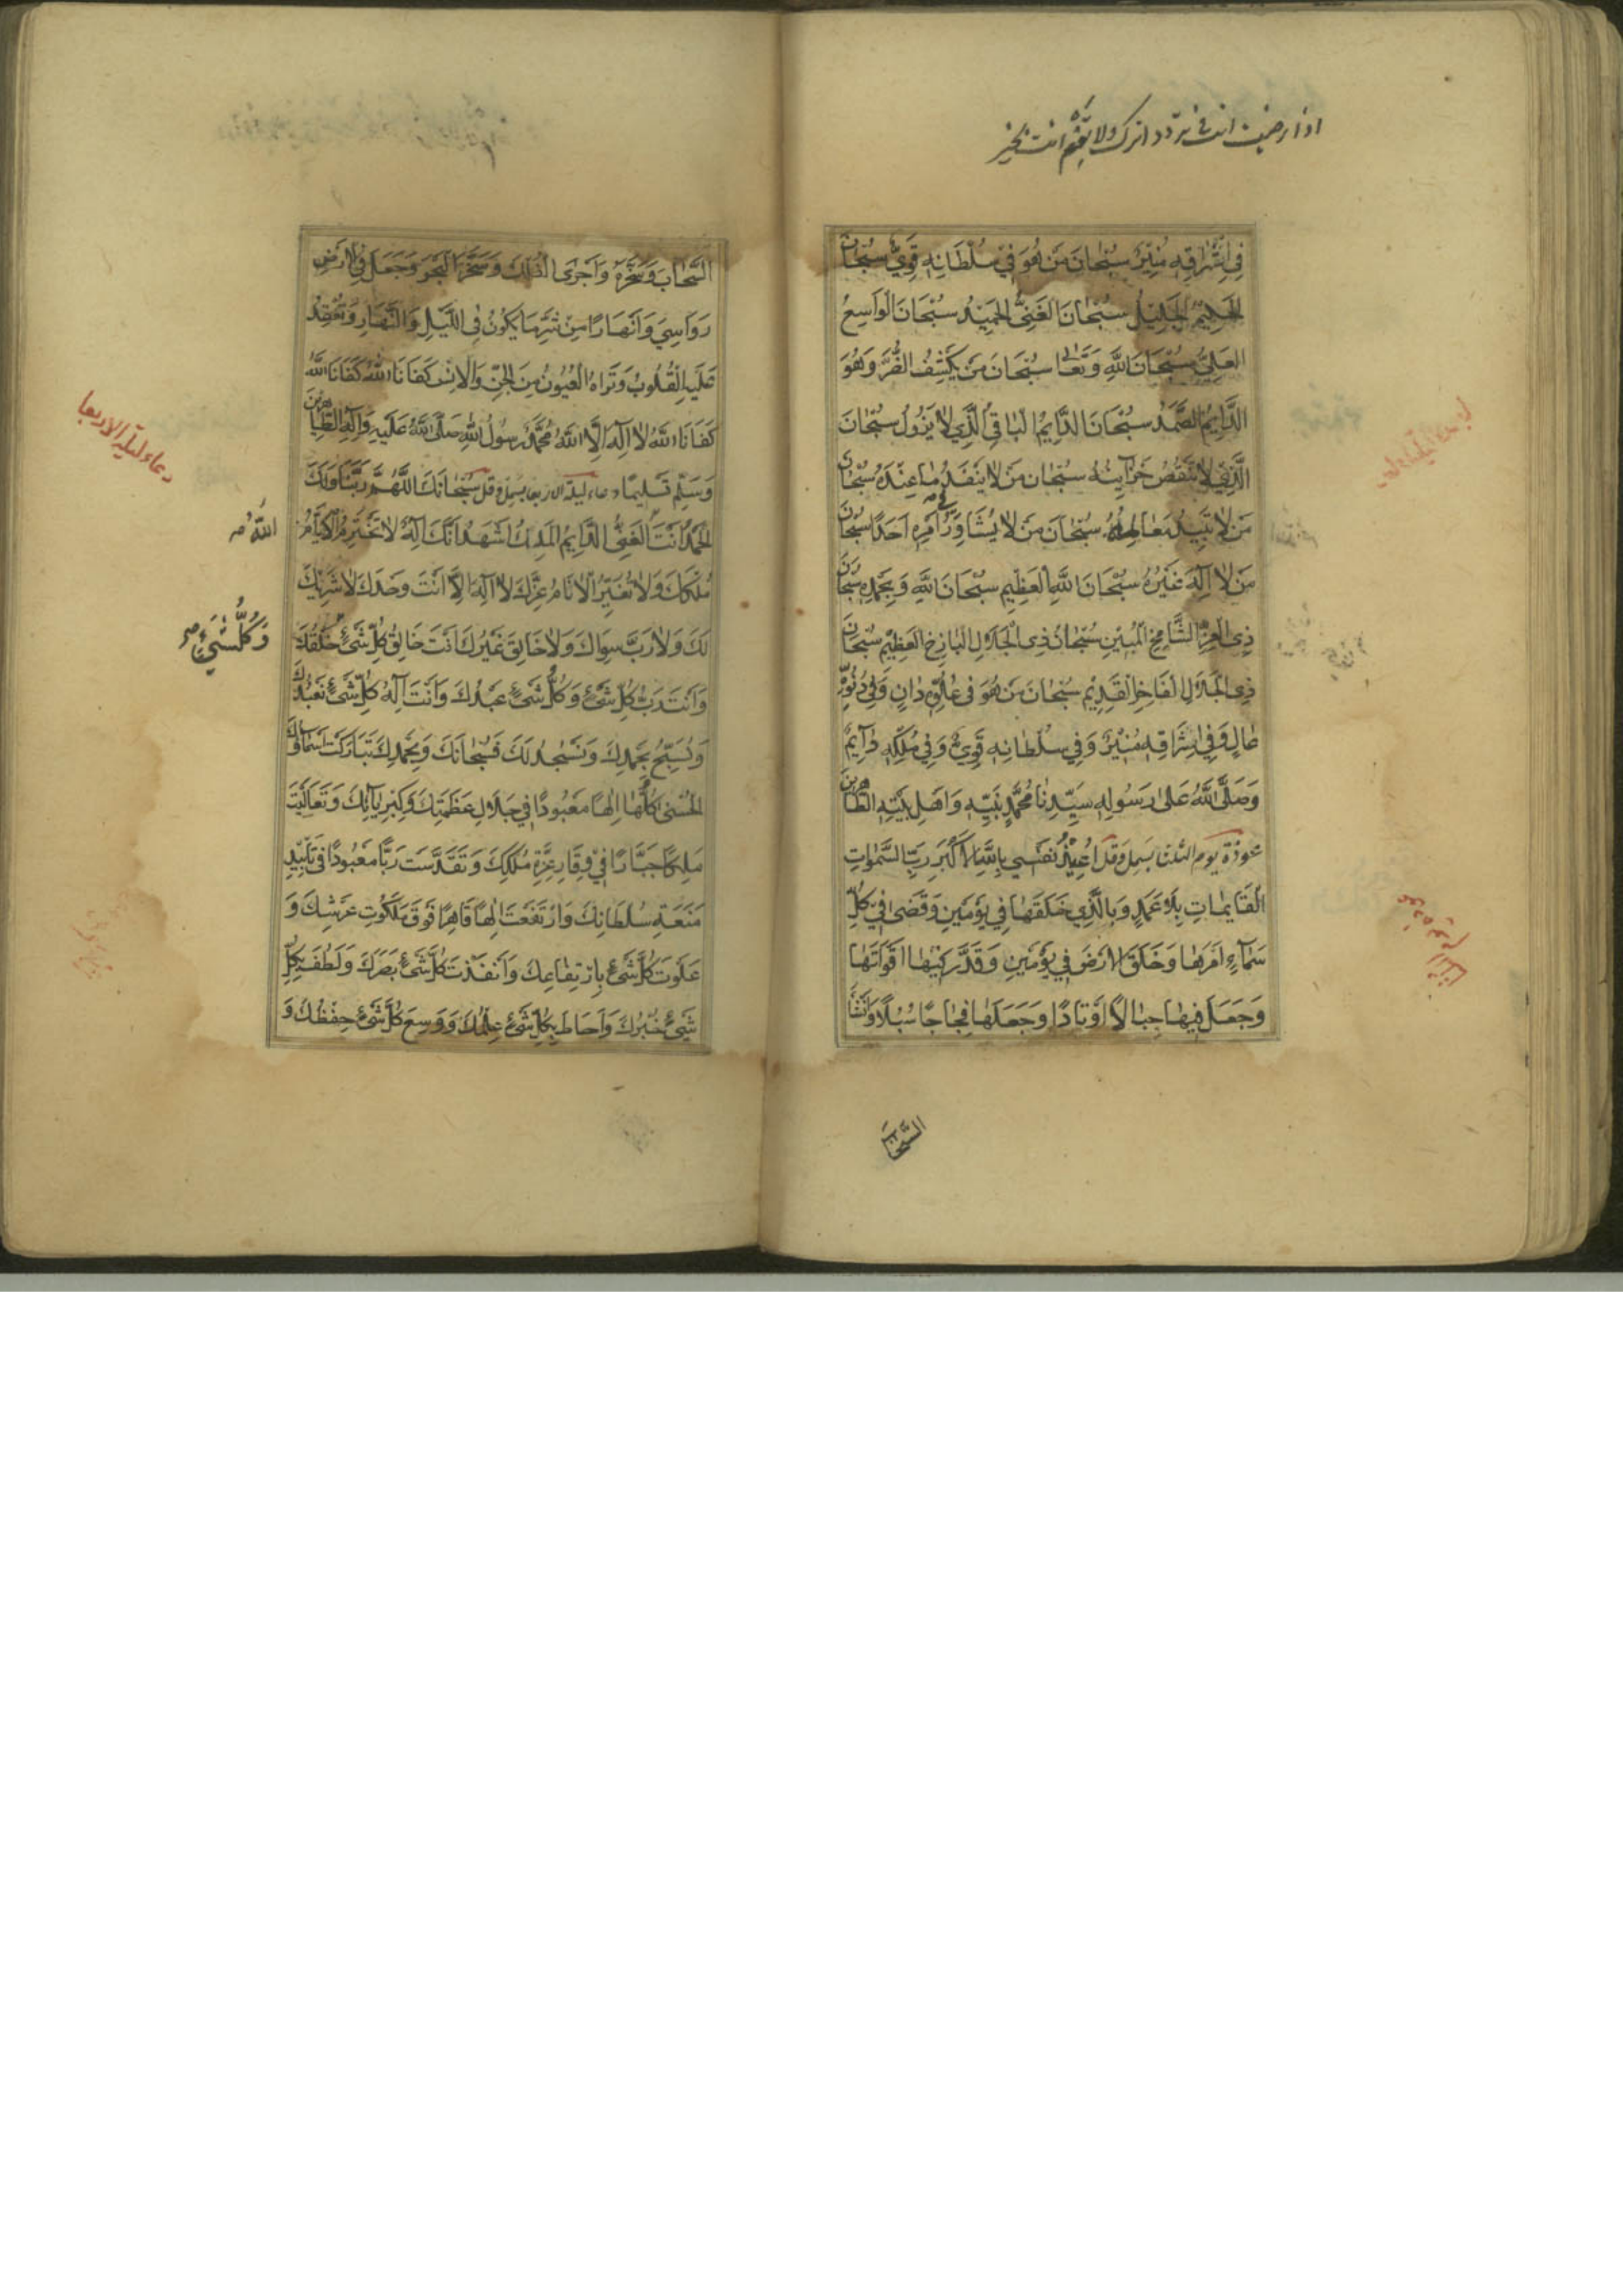 فِي اِشْرَاقِهِ مُنِيْرٌ سُبْحَانَ مَنْ هُوَ فِيْ سُلْطَانِهِ قَوِيٌّ سُبْحَانَ
الْحَلِيْمِ الْجَلِيْلِ سُبْحَانَ الْغَنِيِّ الْحَمِيْدِ سُبْحَانَ الْوَاسِعِ
الْعَلِيِّ سُبْحَانَ اللّٰهِ وَتَعَالٰى سُبْحَانَ مَنْ يَكْشِفُ الضُّرَّ وَهُوَ
الدَّايِمُ الصَّمَدُ سُبْحَانَ الدَّايِمِ الْبَاقِي الَّذِي لَا يَزُولُ سُبْحَانَ
الَّذِيْ لَا تَنْقُصُ خَزَآيِنُهُ سُبْحَانَ مَنْ لَا يَنْفَدُ مَا عِنْدَهُ سُبْحَانَ
مَنْ لَا تَبِيْدُ مَعَالِمُهُ سُبْحَانَ مَنْ لَا يُشَاوِرُ فِي اَمْرِهِ اَحَدًا سُبْحَانَ
مَنْ لَا اِلٰهَ غَيْرُهُ سُبْحَانَ اللّٰهِ الْعَظِيْمِ سُبْحَانَ اللّٰهِ وَبِحَمْدِهِ سُبْحَانَ
ذِي الْعِزِّ الشَّامِخِ الْمُبِيْنِ سُبْحَانَ ذِي الْجَلَالِ الْبَاذِخِ الْعَظِيْمِ سُبْحَانَ
ذِي الْجَلَالِ الْفَاخِرِ الْقَدِيْمِ سُبْحَانَ مَنْ هُوَ فِي عُلُوِّهِ دَانٍ وَفِي دُنُوِّهِ
عَالٍ وَفِي اِشْرَاقِهِ مُنِيْرٌ وَفِي سُلْطَانِهِ قَوِيٌّ وَفِي مُلْكِهِ دَآيِمٌ
وَصَلَّى اللّٰهُ عَلٰى رَسُولِهِ سَيِّدِنَا مُحَمَّدٍ نَبِيِّهِ وَاَهْلِ بَيْتِهِ الطَّاهِرِيْنَ
عوذة يوم الثلثا بسمل وقل اُعِيْذُ نَفْسِي بِاللّٰهِ الْاَكْبَرِ رَبِّ السَّمٰوَاتِ
الْقَآيِمَاتِ بِلَا عَمَدٍ وَبِالَّذِي خَلَقَهَا فِي يَوْمَيْنِ وَقَضٰى فِي كُلِّ
سَمَآءٍ اَمْرَهَا وَخَلَقَ الْاَرْضَ فِي يَوْمَيْنِ وَقَدَّرَ فِيْهَا اَقْوَاتَهَا
وَجَعَلَ فِيْهَا جِبَالًا اَوْتَادًا وَجَعَلَهَا فِجَاجًا سُبُلًا وَاَنْشَأَ
السَّحَابَ
السَّحَابَ وَسَخَّرَهُ وَاَجْرَى الْفُلْكَ وَسَخَّرَ الْبَحْرَ وَجَعَلَ فِي الْاَرْضِ
رَوَاسِيَ وَاَنْهَارًا مِنْ شَرِّ مَا يَكُوْنُ فِي اللَّيْلِ وَالنَّهَارِ وَتَعْقِدُ
عَلَيْهِ الْقُلُوبُ وَتَرَاهُ الْعُيُونُ مِنَ الْجِنِّ وَالْاِنْسِ كَفَانَا اللّٰهُ كَفَانَا اللّٰهُ
كَفَانَا اللّٰهُ لَا اِلٰهَ اِلَّا اللّٰهُ مُحَمَّدٌ رَسُولُ اللّٰهِ صَلَّى اللّٰهُ عَلَيْهِ وَآلِهِ الطَّاهِرِيْنَ
وَسَلَّمَ تَسْلِيمًا دعاء ليلة الاربعا بسمل وقل سُبْحَانَكَ اللّٰهُمَّ رَبَّنَا وَلَكَ
الْحَمْدُ اَنْتَ الْغَنِيُّ الدَّايِمُ الْمَلِكُ اَشْهَدُ اَنَّكَ اِلٰهٌ لَا تَخْتَرِمُ الْاَيَّامُ
مُلْكَكَ وَلَا تُغَيِّرُ الْاَنَامُ عِزَّكَ لَا اِلٰهَ اِلَّا اَنْتَ وَحْدَكَ لَا شَرِيْكَ
لَكَ وَلَا رَبَّ سِوَاكَ وَلَا خَالِقَ غَيْرُكَ اَنْتَ خَالِقُ كُلِّ شَيْءٍ خَلْقُكَ
وَاَنْتَ رَبُّ كُلِّ شَيْءٍ وَكُلُّ شَيْءٍ عَبْدُكَ وَاَنْتَ اِلٰهُ كُلِّ شَيْءٍ نَعْبُدُكَ
وَنُسَبِّحُ بِحَمْدِكَ وَنَسْجُدُ لَكَ فَسُبْحَانَكَ وَبِحَمْدِكَ تَبَارَكْتَ اَسْمَاؤُكَ
الْحُسْنٰى كُلُّهَا اِلٰهًا مَعْبُودًا فِي جَلَالِ عَظَمَتِكَ وَكِبْرِيَآئِكَ وَتَعَالَيْتَ
مَلِكًا جَبَّارًا فِيْ وَقَارِ عِزَّةِ مُلْكِكَ وَتَقَدَّسْتَ رَبًّا مَعْبُودًا فِي تَأْيِيْدِ
مَنَعَةِ سُلْطَانِكَ وَارْتَفَعْتَ اِلٰهًا قَاهِرًا فَوْقَ مَلَكُوتِ عَرْشِكَ وَ
عَلَوْتَ كُلَّ شَيْءٍ بِارْتِفَاعِكَ وَاَنْفَذْتَ كُلَّ شَيْءٍ بَصَرَكَ وَلَطُفَ بِكُلِّ
شَيْءٍ خُبْرُكَ وَاَحَاطَ بِكُلِّ شَيْءٍ عِلْمُكَ وَوَسِعَ كُلَّ شَيْءٍ حِفْظُكَ وَ
دعاء ليلة الاربعا
اللّٰهُ
وَكُلُّ شَيْءٍ